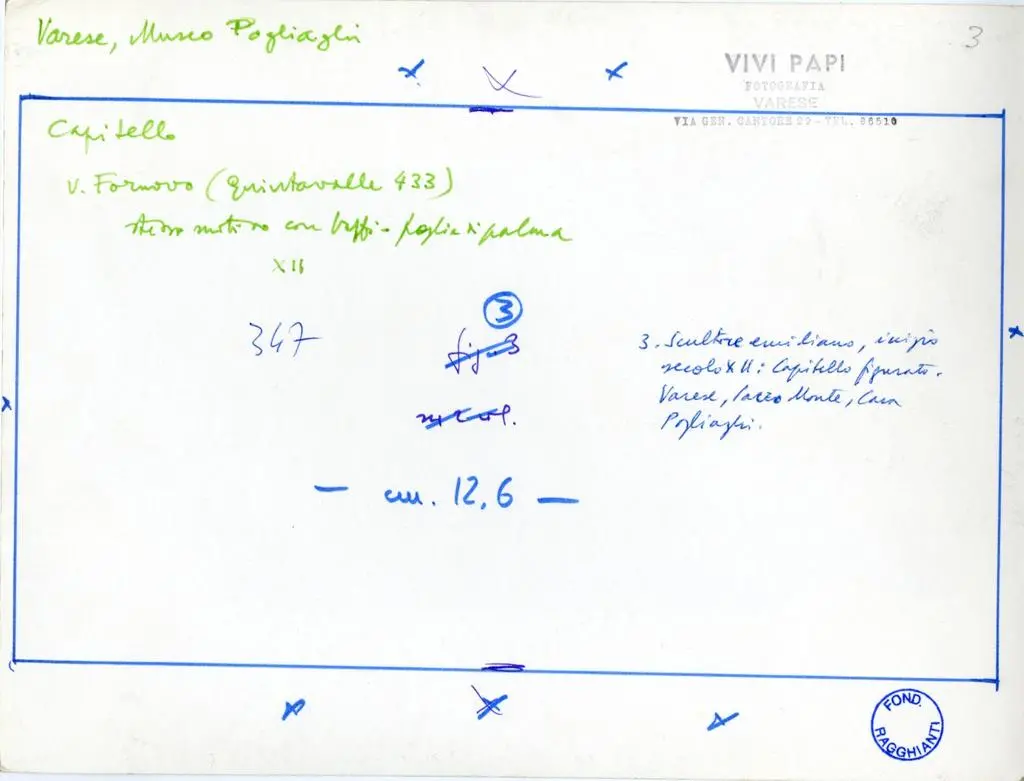 Varese, Museo Pogliaghi
3
VIVI PAPI
FOTOGRAFIA
VARESE
VIA GEN. CANTORE 22 - TEL. 86510
Capitello
v. Fornovo (Quintavalle 433)
stesso motivo con baffi - foglia di palma
XII
3
347
fig. 3
3. Scultore emiliano, inizio
secolo XII: Capitello figurato.
Varese, Sacro Monte, Casa
Pogliaghi.
— cm. 12,6 —
FOND. RAGGHIANTI